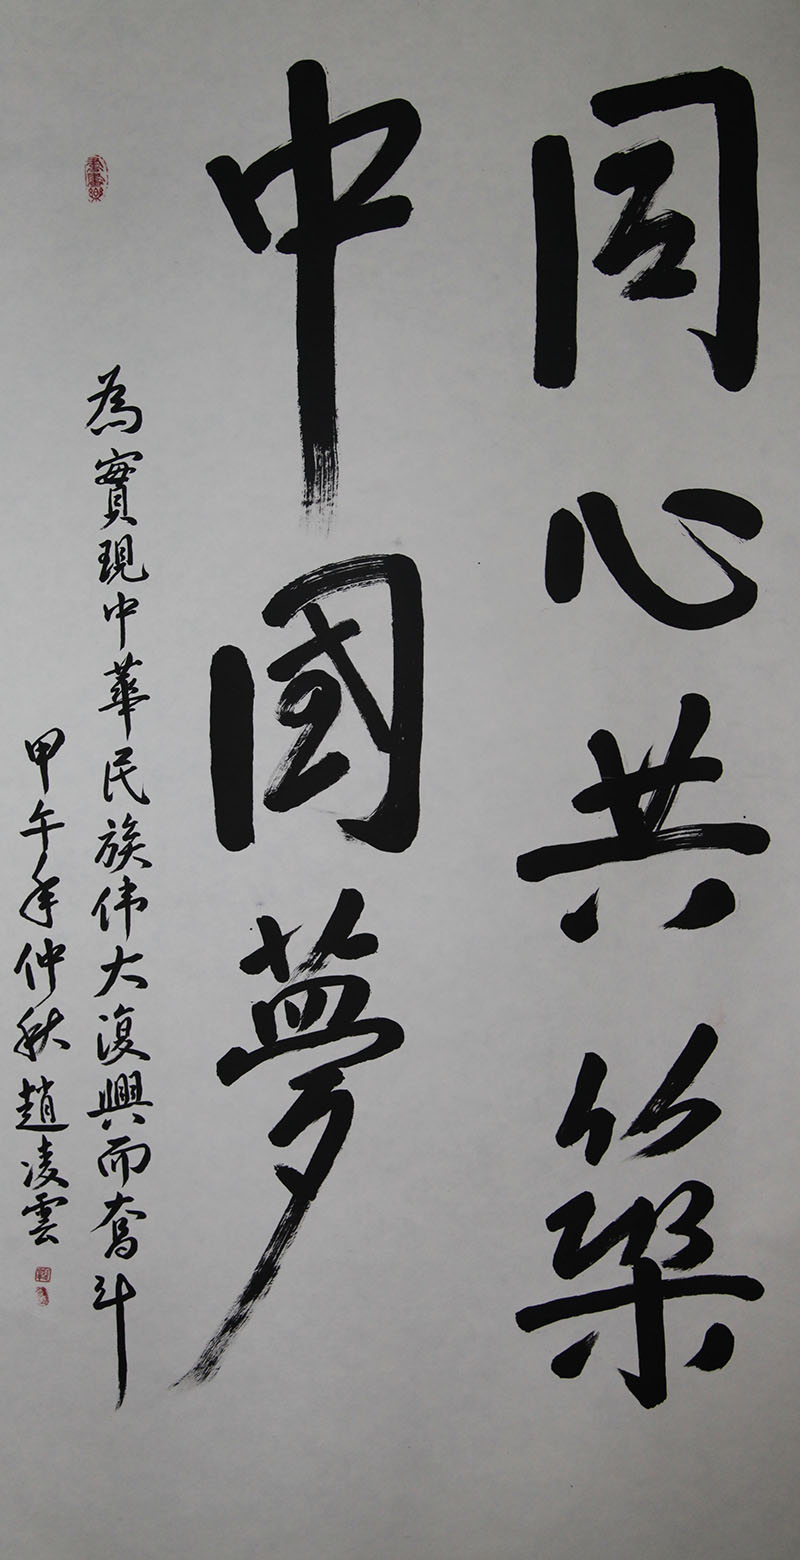 同心共築
中國夢
為實現中華民族伟大復興而奮斗
甲午年仲秋趙凌雲